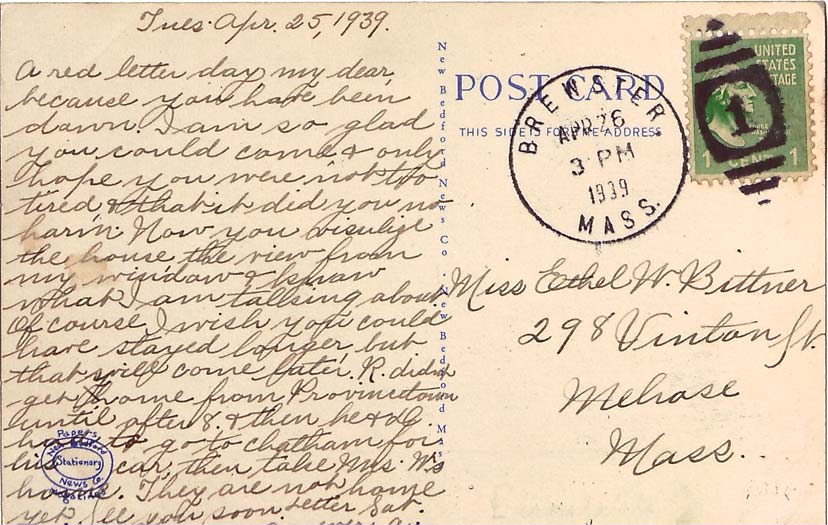 Tues. Apr. 25, 1939.
A red letter day my dear,
because you have been
down. I am so glad
you could come & only
hope you were not too
tired & that it did you no
harm. Now you visulize
the house the view from
my window & know
what I am talking about
Of course I wish you could
have stayed longer but
that will come later. R. didn't
get home from Provincetown
until after 8. & then he & G.
had to go to Chatham for
his car, then take Mrs. W's
home. They are not home
yet. See you soon. Letter Sat.
Papers
New Bedford
Stationary
News Co.
Magazines
New Bedford News Co. New Bedford Mass
POST CARD
THIS SIDE IS FOR THE ADDRESS
BREWSTER
APR 26
3 PM
1939
MASS.
UNITED
STATES
POSTAGE
1 CENT 1
1
Miss Ethel W. Bittner
298 Vinton St.
Melrose
Mass.